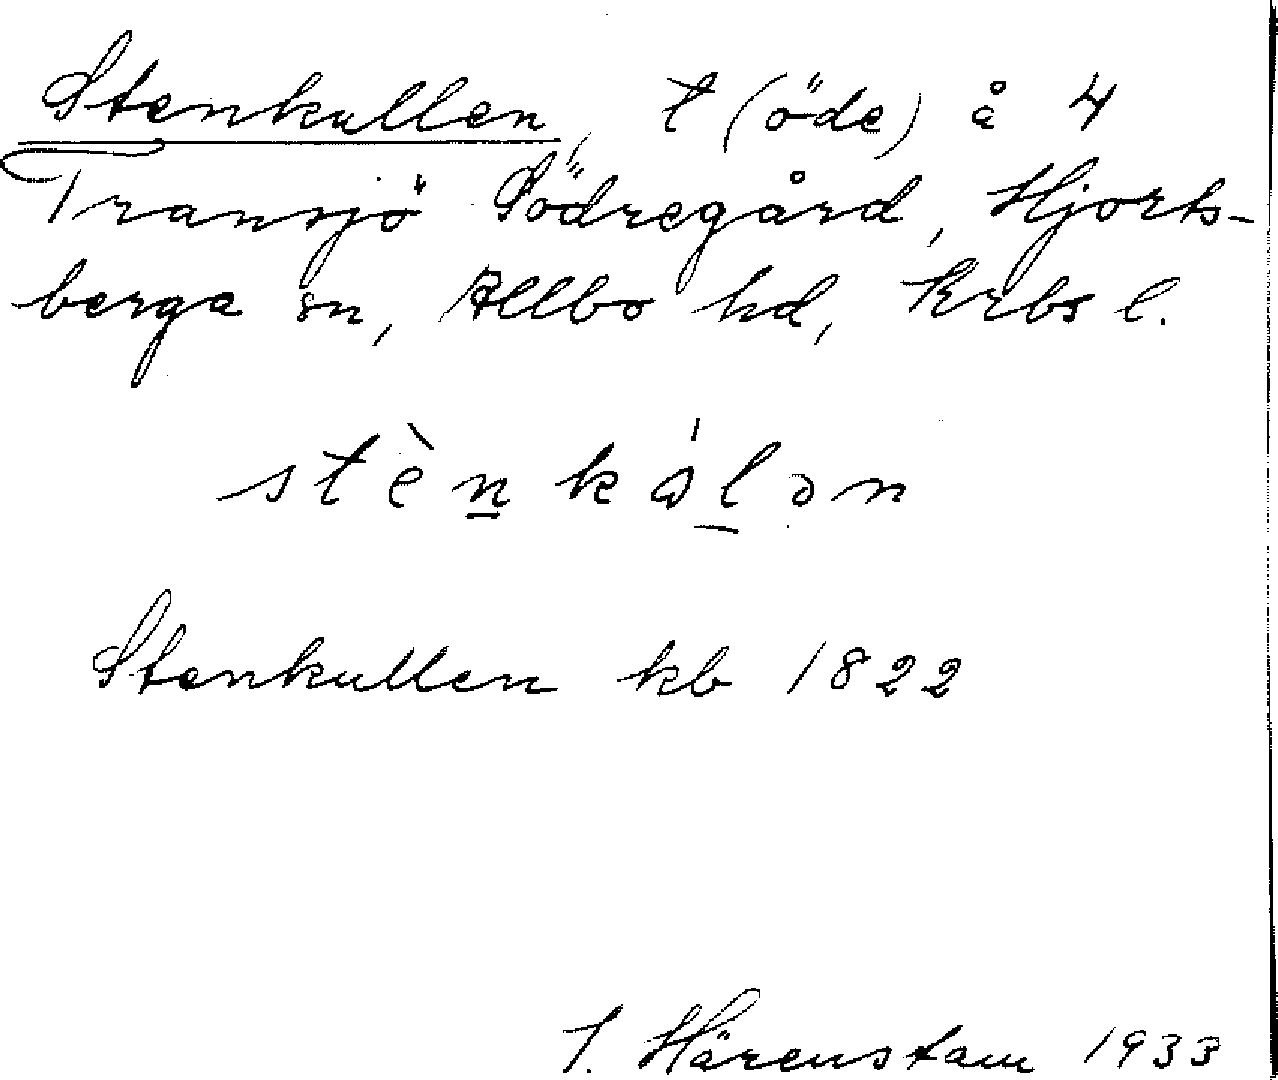 Stenkullen, t (öde) å 4
Transjö Södregård, Hjorts-
berga sn, Allbo hd, Krbs l.
stènkə́lən
Stenkullen kb 1822
J. Härenstam 1933